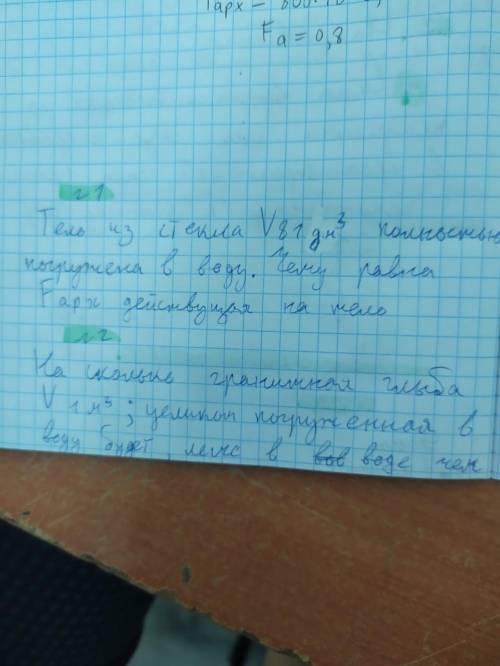 Fарх =
Fа = 0,8
№1
Тело из стекла V 81 дм³ полностью
погружена в воду. Чему равна
Fарх действующая на тело
№2
На сколько гранитная глыба
V 1 м³; целиком погруженная в
воду будет легче в воде чем